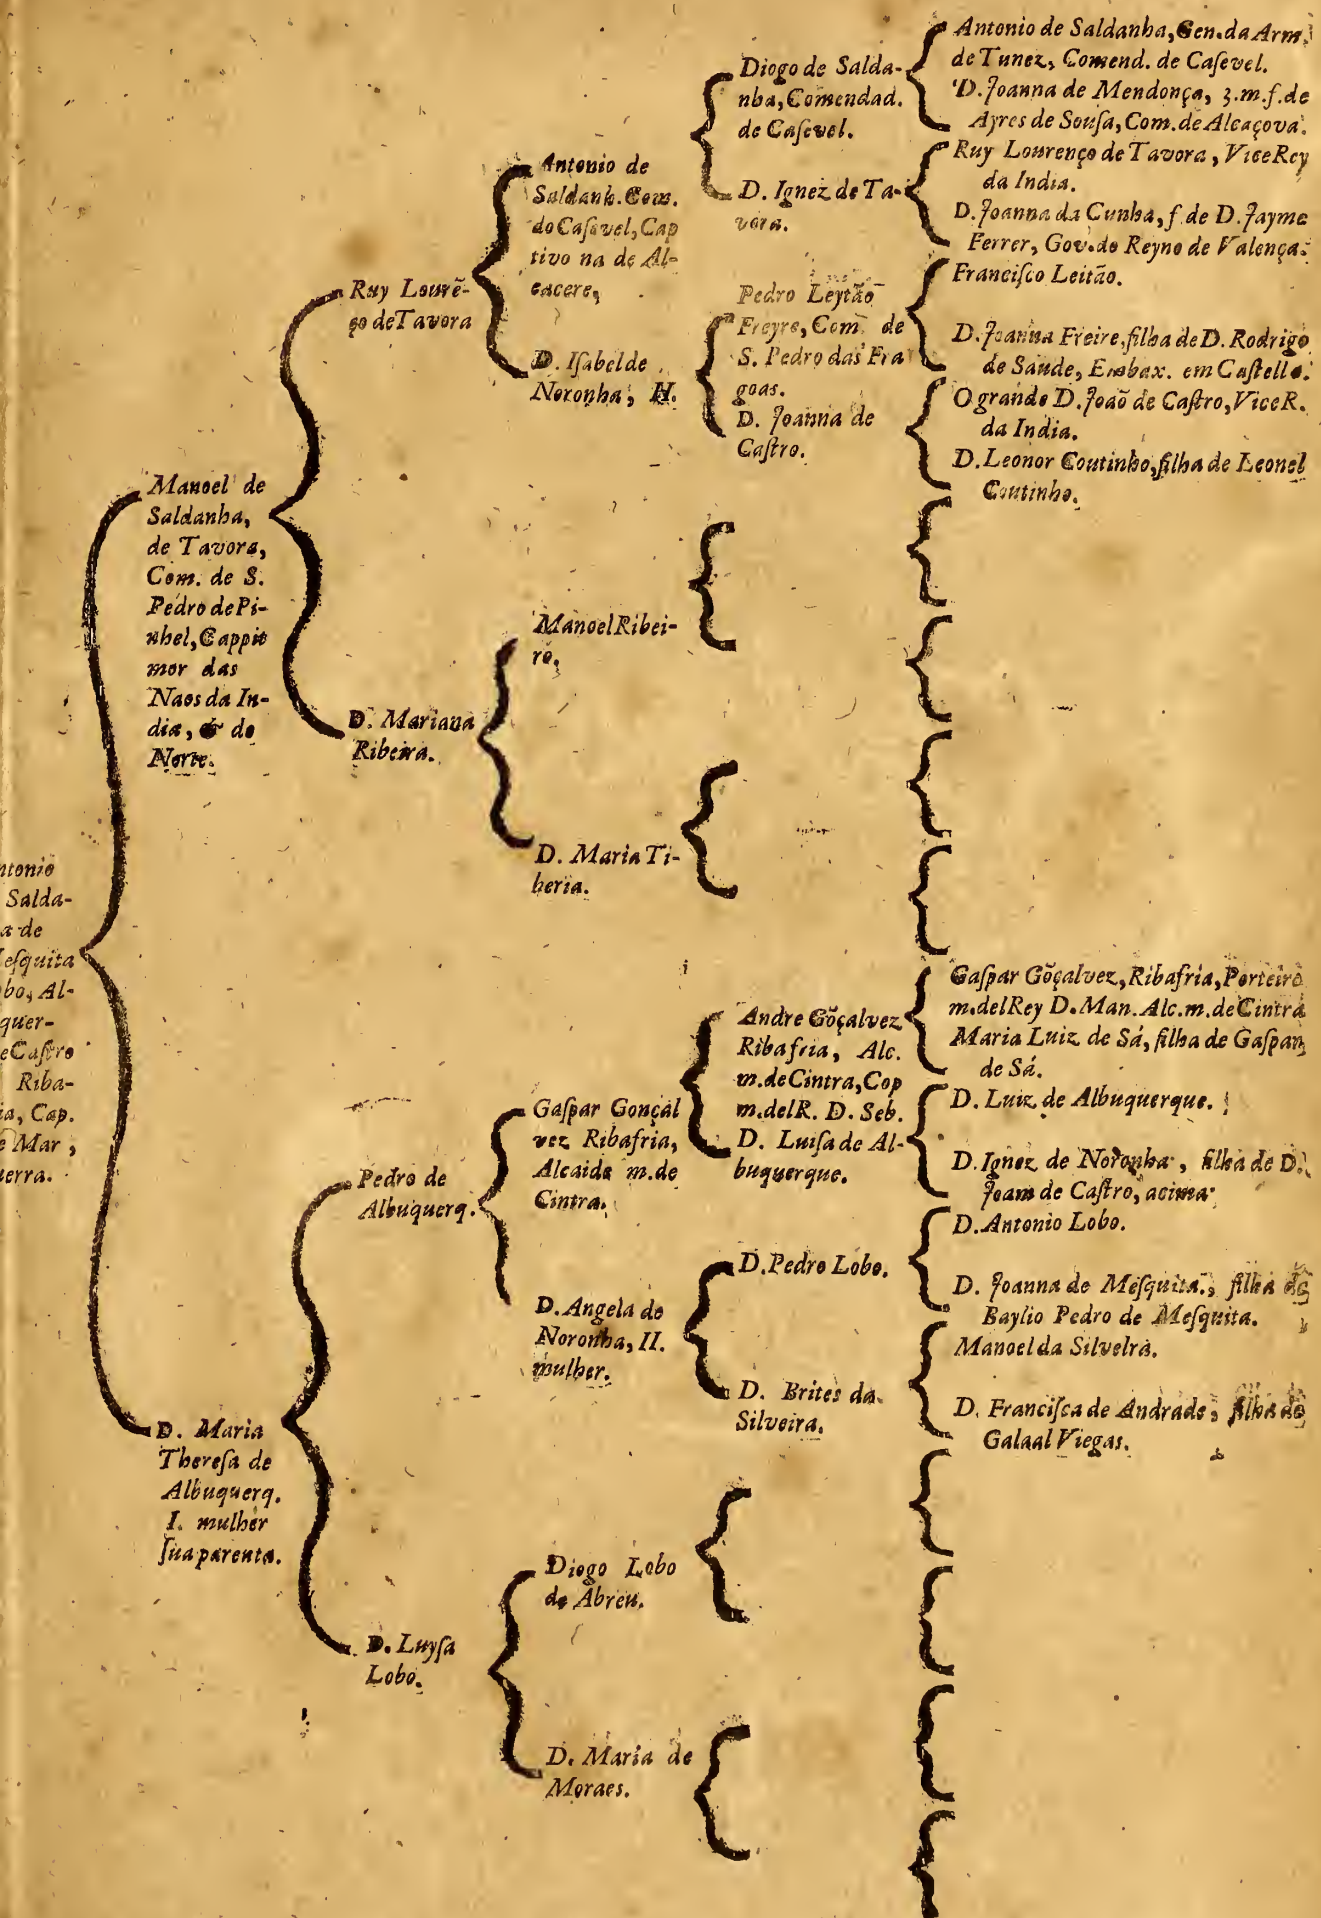 ntonio
Salda-
a de
eſquita
bo, Al-
quer-
e Caſtro
Riba-
ia, Cap.
e Mar,
uerra.
Manoel de
Saldanha,
de Tavora,
Com. de S.
Pedro de Pi-
nhel, Cappit
mor das
Naos da In-
dia, & do
Norte.
D. Maria
Thereſa de
Albuquerq.
I. mulher
ſua parenta.
Ruy Lourẽ-
ço de Tavora
D. Mariana
Ribeira.
Pedro de
Albuquerq.
D. Luyſa
Lobo.
Antonio de
Saldanh. Com.
do Caſevel, Cap
tivo na de Al-
cacere,
D. Iſabel de
Noronha, H.
Manoel Ribei-
ro,
D. Maria Ti-
beria.
Gaſpar Gonçal
vez Ribafria,
Alcaide m. de
Cintra.
D. Angela de
Noronha, II.
mulher.
Diogo Lobo
de Abreu.
D. Maria de
Moraes.
Diogo de Salda-
nha, Comendad.
de Caſevel.
D. Ignez de Ta-
vora.
Pedro Leytão
Freyre, Com. de
S. Pedro das Fra
goas.
D. Joanna de
Caſtro.
Andre Gõçalvez
Ribafria, Alc.
m. de Cintra, Cop
m. del R. D. Seb.
D. Luiſa de Al-
buquerque.
D. Pedro Lobo.
D. Brites da
Silveira.
Antonio de Saldanha, Gen. da Arm.
de Tunez, Comend. de Caſevel.
D. Joanna de Mendonça, 3. m. f. de
Ayres de Souſa, Com. de Alcaçova.
Ruy Lourenço de Tavora, Vice Rey
da India.
D. Joanna da Cunha, f. de D. Jayme
Ferrer, Gov. do Reyno de Valença.
Franciſco Leitão.
D. Joanna Freire, filha de D. Rodrigo
de Saude, Embax. em Caſtella.
O grande D. Joaõ de Caſtro, Vice R.
da India.
D. Leonor Coutinho, filha de Leonel
Coutinho.
Gaſpar Gõçalvez, Ribafria, Porteiro
m. del Rey D. Man. Alc. m. de Cintra
Maria Luiz de Sá, filha de Gaſpar
de Sá.
D. Luiz de Albuquerque.
D. Ignez de Noronha, filha de D.
Joam de Caſtro, acima.
D. Antonio Lobo.
D. Joanna de Meſquita, filha do
Baylio Pedro de Meſquita.
Manoel da Silveira.
D. Franciſca de Andrade, filha de
Galaal Viegas.